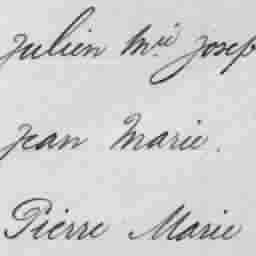 Julien Mie Josep
Jean Marie.
Pierre Marie